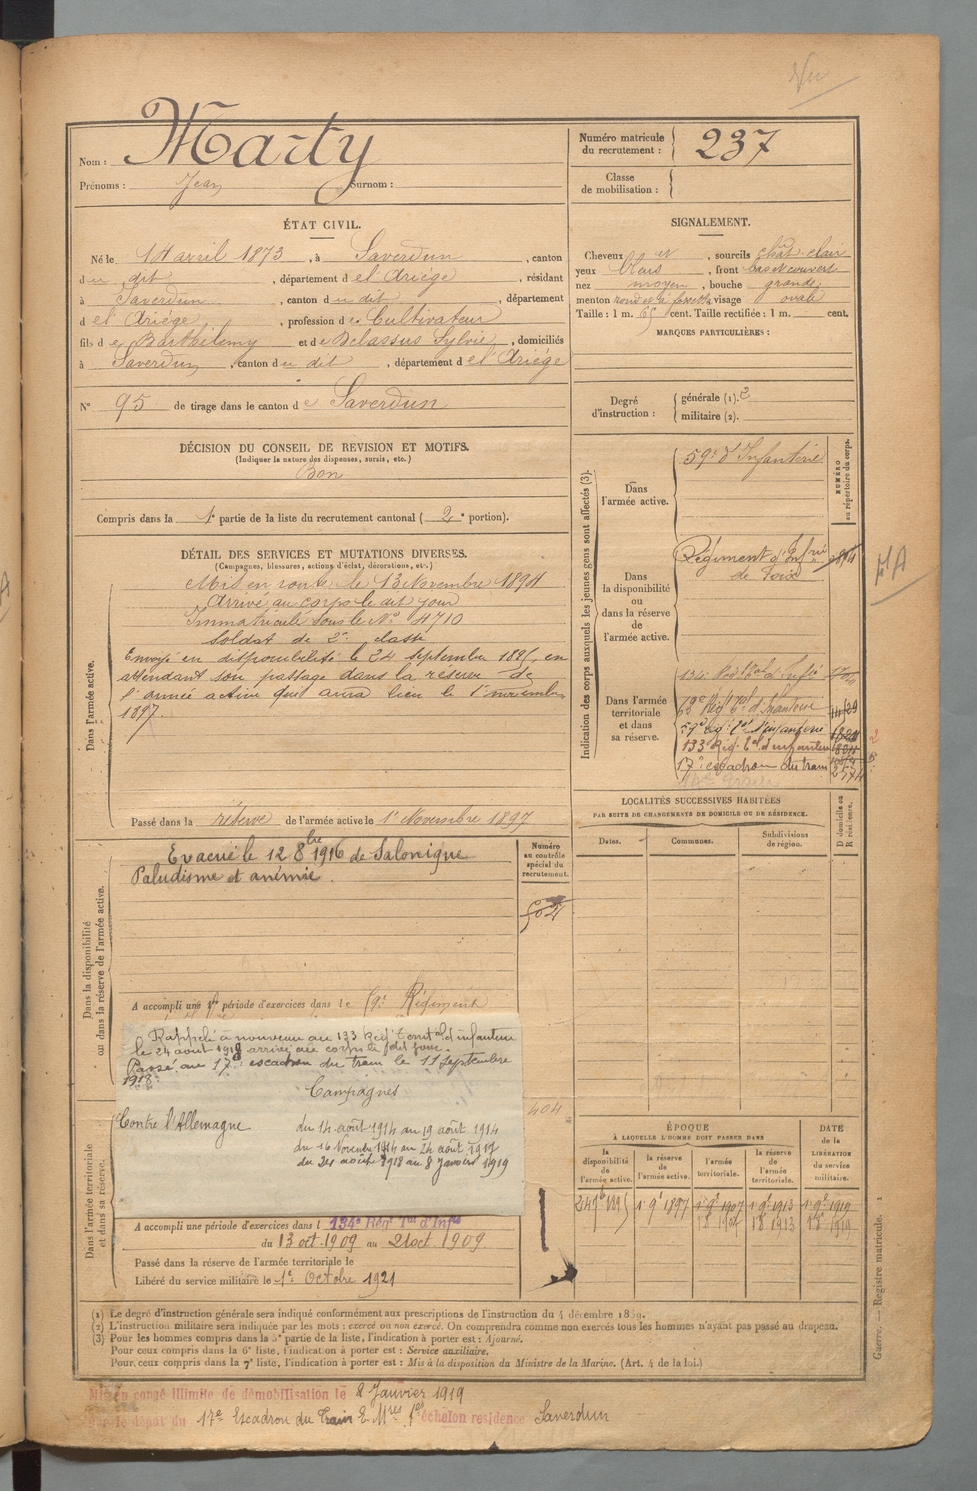 Vu
Nom : Marty
Prénoms : Jean Surnom :
Numéro matricule du recrutement : 237
Classe de mobilisation :
ÉTAT CIVIL.
Né le 14 avril 1873, à Saverdun, canton
du dit, département de l'Ariège, résidant
à Saverdun, canton du dit, département
de l'Ariège, profession de Cultivateur
fils de Barthélemy et de Delassus Sylvie, domiciliés
à Saverdun, canton du dit, département de l'Ariège
N° 95 de tirage dans le canton de Saverdun
SIGNALEMENT.
Cheveux et, sourcils chât. clair
yeux bleus, front bas et couvert
nez moyen, bouche grande
menton rond et à fossette visage ovale
Taille : 1 m. 65 cent. Taille rectifiée : 1 m. cent.
MARQUES PARTICULIÈRES :
Degré d'instruction : générale (1). 2
militaire (2).
DÉCISION DU CONSEIL DE RÉVISION ET MOTIFS.
(Indiquer la nature des dispenses, sursis, etc.)
Bon
Compris dans la 1e partie de la liste du recrutement cantonal (2e portion).
DÉTAIL DES SERVICES ET MUTATIONS DIVERSES.
(Campagnes, blessures, actions d'éclat, décorations, etc.)
Dans l'armée active.
Mis en route le 13 Novembre 1894
Arrivé au corps le dit jour
Immatriculé sous le N° 4710
Soldat de 2e classe
Envoyé en disponibilité le 24 septembre 1895, en
attendant son passage dans la réserve de
l'armée active qui aura lieu le 1er novembre
1897.
Passé dans la réserve de l'armée active le 1er Novembre 1897
Indication des corps auxquels les jeunes gens sont affectés (3).
NUMÉRO au répertoire du corps.
Dans l'armée active.
59e d'Infanterie
Dans la disponibilité ou dans la réserve de l'armée active.
Régiment d'Infrie
de Foix
FA
Dans l'armée territoriale et dans sa réserve.
134e Reg. tal d'Infie
Rég. tal d'Infanterie
59e rég. tal d'infanterie
133e Rég. tal d'infanterie
17e escadron du train
Dans la disponibilité ou dans la réserve de l'armée active.
Evacué le 12 8bre 1916 de Salonique
Paludisme et anémie.
Numéro au contrôle spécial du recrutement.
A accompli une 1re période d'exercices dans le 59e Régiment
Rappelé à nouveau au 133 Rég Territal d'infanterie
le 24 août 1918 arrivé au corps le dit jour.
Passé au 17e escadron du train le 11 Septembre
1918.
Campagnes
Contre l'Allemagne du 14 août 1914 au 19 août 1914
du 16 Novembre 1914 au 24 août 1917
du 24 août 1918 au 8 Janvier 1919
404
Dans l'armée territoriale et dans sa réserve.
A accompli une période d'exercices dans l 134e Régt Tal d'Infie
du 13 oct 1909 au 21 oct 1909
Passé dans la réserve de l'armée territoriale le
Libéré du service militaire le 1er Octobre 1921
LOCALITÉS SUCCESSIVES HABITÉES
PAR SUITE DE CHANGEMENTS DE DOMICILE OU DE RÉSIDENCE.
Dates. Communes. Subdivisions de région. D domicile ou R résidence.
ÉPOQUE
À LAQUELLE L'HOMME DOIT PASSER DANS
la disponibilité de l'armée active. la réserve de l'armée active. l'armée territoriale. la réserve de l'armée territoriale. DATE de la LIBÉRATION du service militaire.
24 9bre 1895 1er 9bre 1897 1er 9bre 1907 1er 9bre 1913 1er 9bre 1919
(1) Le degré d'instruction générale sera indiqué conformément aux prescriptions de l'instruction du 4 décembre 1889.
(2) L'instruction militaire sera indiquée par les mots : exercé ou non exercé. On comprendra comme non exercés tous les hommes n'ayant pas passé au drapeau.
(3) Pour les hommes compris dans la 5e partie de la liste, l'indication à porter est : Ajourné.
Pour ceux compris dans la 6e liste, l'indication à porter est : Service auxiliaire.
Pour ceux compris dans la 7e liste, l'indication à porter est : Mis à la disposition du Ministre de la Marine. (Art. 4 de la loi.)
Guerre. — Registre matricule. 1
Mis en congé illimité de démobilisation le 8 Janvier 1919
par le dépôt du 17e Escadron du Train échelon résidence Saverdun